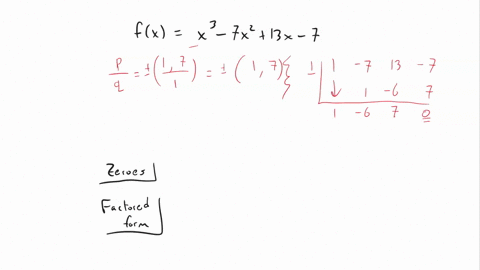 f(x) = x³ - 7x² + 13x - 7
p/q = ± (1, 7 / 1) = ± (1, 7) { 1 | 1 -7 13 -7
↓ 1 -6 7
1 -6 7 0
Zeroes
Factored
form